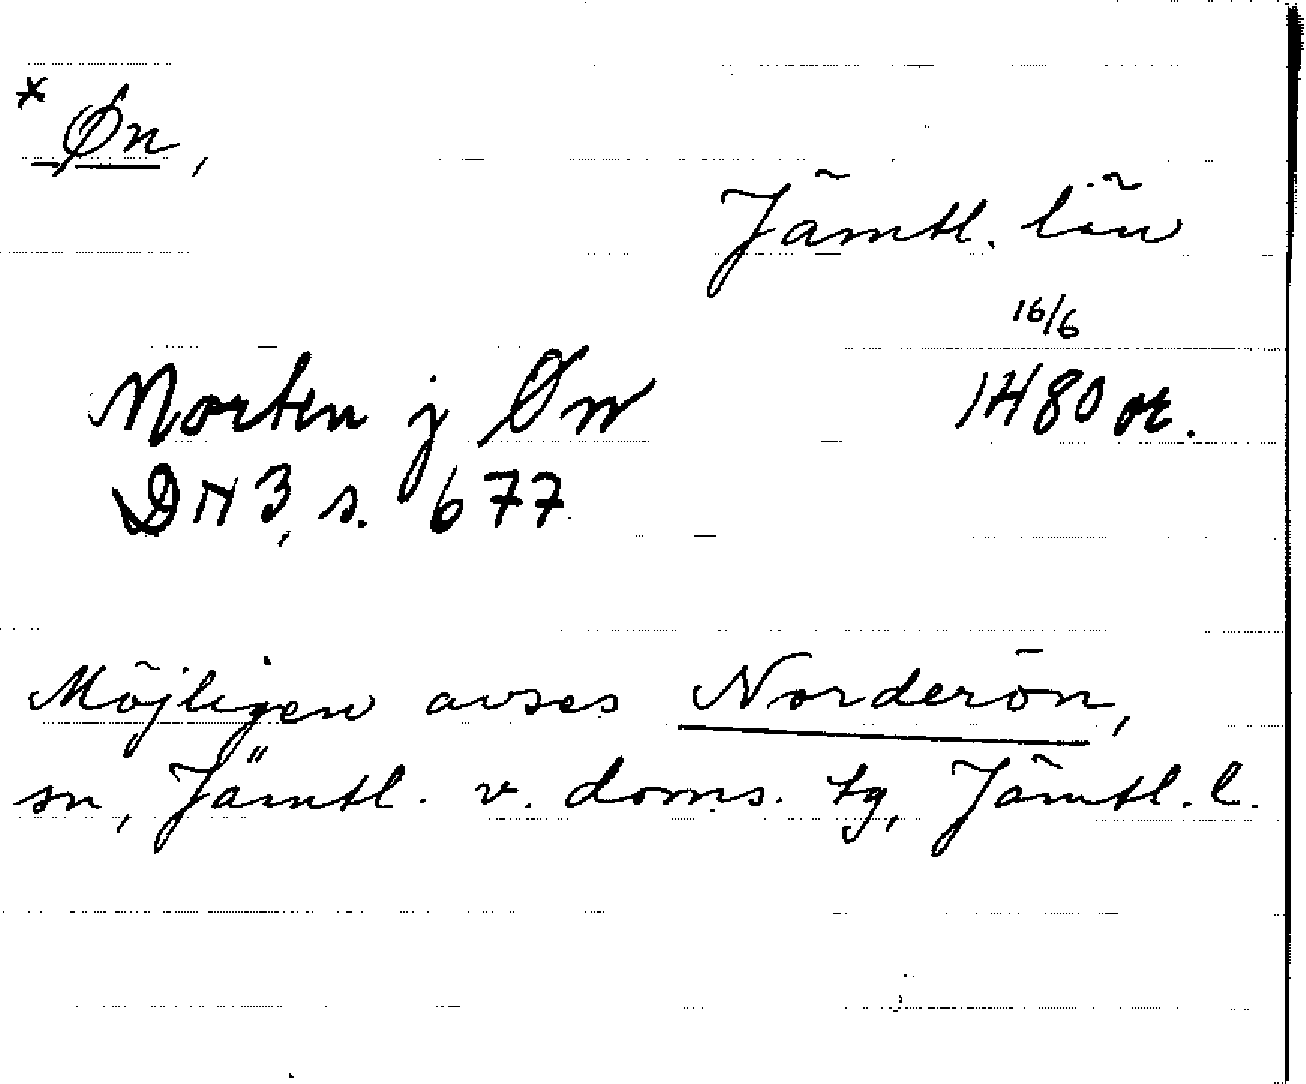 * Øn,
Jämtl. län
16/6
Morten j Øn 1480 or.
DN 3, s. 677
Möjligen avses Norderön,
sn, Jämtl. v. doms. tg, Jämtl. l.